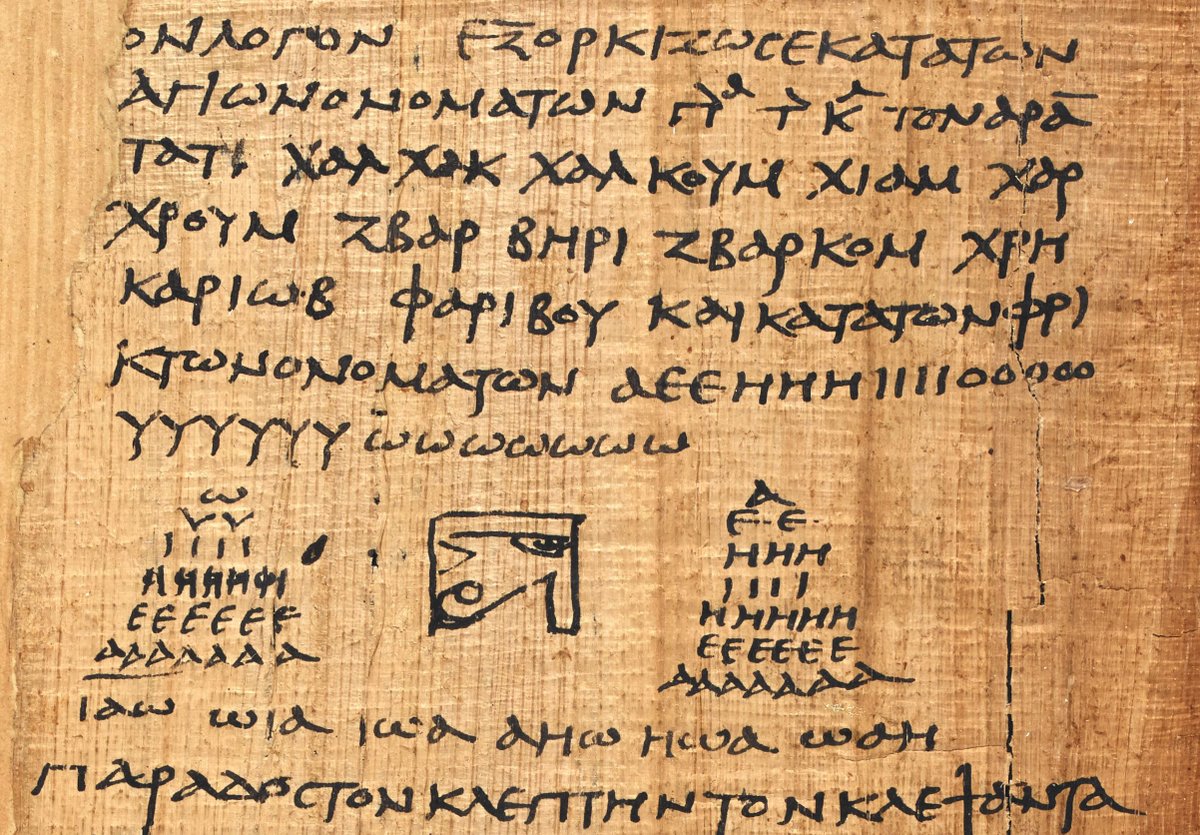 ονλογον εξορκιζωσεκατατων
αγιωνονοματων τοναρα
τατ χαλχακ χαλκουμ χιαμ χαρ
χρουμ ζβαρ βηρι ζβαρκομ χρη
καριωβ φαριβου καικατατωνφρι
κτωνονοματων αεεηηηιιιιοοοοο
υυυυυυ ωωωωωωω
ω
υυ
ιιιι
εεεεεε
ααααααα
α
εε
ηηη
ιιιι
ηηηηη
εεεεεε
ααααααα
ιαω ωια ιωα αηω ηωα ωαη
παραδοςτονκλεπτηντονκλεψαντα